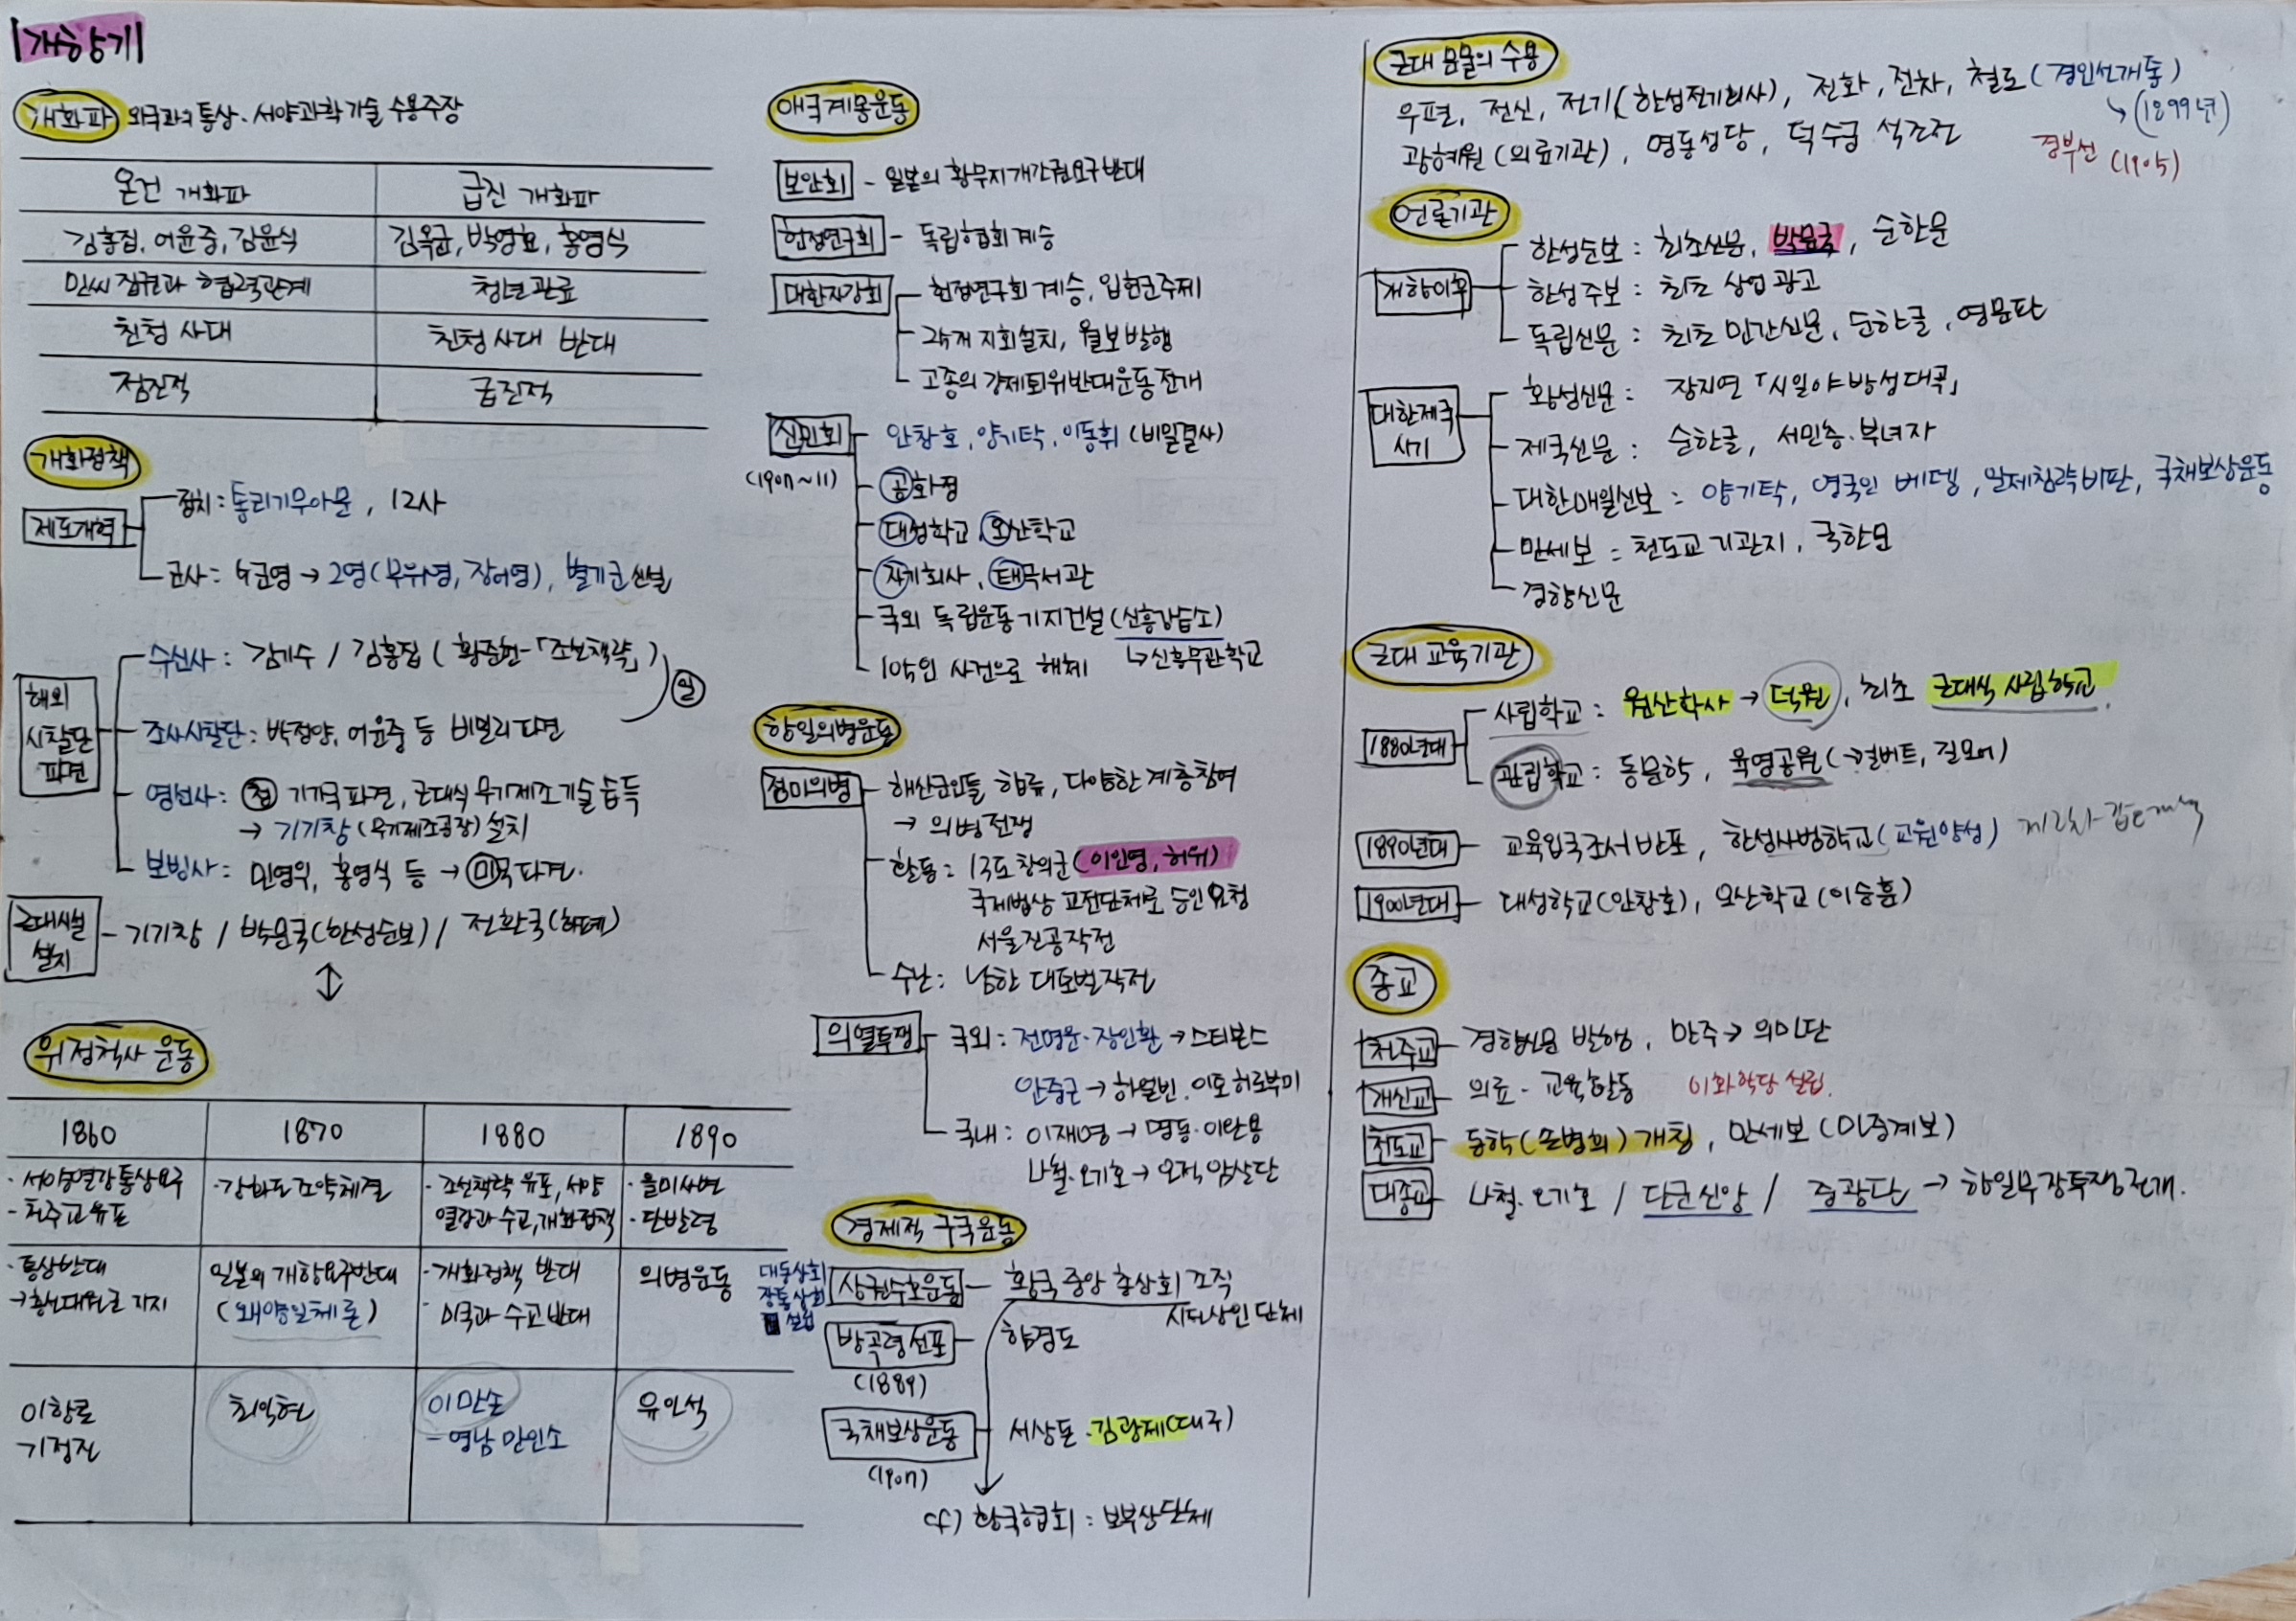 개항기
개화파 외국과의 통상·서양과학기술 수용주장
온건 개화파 급진 개화파
김홍집, 어윤중, 김윤식 김옥균, 박영효, 홍영식
민씨정권과 협력관계 청년관료
친청 사대 친청 사대 반대
점진적 급진적
개화정책
제도개혁
정치 : 통리기무아문, 12사
군사 : 5군영 → 2영(무위영, 장어영), 별기군 신설
해외 시찰단 파견
수신사 : 김기수 / 김홍집 (황준헌-「조선책략」)
일
조사시찰단 : 박정양, 어윤중 등 비밀리 파견
영선사 : 청 기기국 파견, 근대식 무기제조기술 습득
→ 기기창 (무기제조공장) 설치
보빙사 : 민영익, 홍영식 등 → 미국 파견.
근대시설 설치 - 기기창 / 박문국(한성순보) / 전환국(화폐)
↕
위정척사 운동
1860 1870 1880 1890
· 서양열강 통상요구
· 천주교 유포
· 강화도 조약체결
· 조선책략 유포, 서양
열강과 수교, 개화정책
· 을미사변
· 단발령
· 통상반대
→ 흥선대원군 지지
일본의 개항요구 반대
(왜양일체론)
· 개화정책 반대
· 미국과 수교 반대
의병운동
이항로
기정진
최익현
이만손
- 영남 만인소
유인석
애국계몽운동
보안회 - 일본의 황무지 개간권 요구 반대
헌정연구회 - 독립협회 계승
대한자강회 - 헌정연구회 계승, 입헌군주제
24개 지회설치, 월보 발행
고종의 강제퇴위 반대운동 전개
신민회 - 안창호, 양기탁, 이동휘 (비밀결사)
(1907~11)
공화정
대성학교 오산학교
자기회사, 태극서관
국외 독립운동 기지건설 (신흥강습소)
↳ 신흥무관학교
105인 사건으로 해체
항일의병운동
정미의병 - 해산군인들 합류, 다양한 계층 참여
→ 의병전쟁
활동 : 13도 창의군 (이인영, 허위)
국제법상 교전단체로 승인 요청
서울진공작전
수난 : 남한 대토벌작전
의열투쟁 - 국외 : 전명운·장인환 → 스티븐스
안중근 → 하얼빈. 이토 히로부미
국내 : 이재명 → 명동·이완용
나철·오기호 → 오적 암살단
경제적 구국운동
대동상회
장통상회
설립
상권수호운동 - 황국 중앙 총상회 조직
시전상인 단체
방곡령선포 - 함경도
(1889)
국채보상운동 - 서상돈·김광제(대구)
(1907)
cf) 황국협회 : 보부상단체
근대 문물의 수용
우편, 전신, 전기(한성전기회사), 전화, 전차, 철도 (경인선개통)
↳ (1899년)
광혜원 (의료기관), 명동성당, 덕수궁 석조전
경부선 (1905)
언론기관
개항이후
한성순보 : 최초신문, 박문국, 순한문
한성주보 : 최초 상업 광고
독립신문 : 최초 민간신문, 순한글, 영문판
대한제국 시기
황성신문 : 장지연 「시일야방성대곡」
제국신문 : 순한글, 서민층·부녀자
대한매일신보 : 양기탁, 영국인 베델, 일제침략비판, 국채보상운동
만세보 : 천도교 기관지, 국한문
경향신문
근대 교육기관
1880년대
사립학교 : 원산학사 → 덕원, 최초 근대식 사립학교.
관립학교 : 동문학, 육영공원 (→ 헐버트, 길모어)
1890년대 - 교육입국조서 반포, 한성사범학교 (교원양성)
1900년대 - 대성학교(안창호), 오산학교 (이승훈)
종교
천주교 - 경향신문 발행, 만주 → 의민단
개신교 - 의료·교육활동 이화학당 설립.
천도교 - 동학 (손병희) 개칭, 만세보 (민중계보)
대종교 - 나철·오기호 / 단군신앙 / 중광단 → 항일무장투쟁 전개.